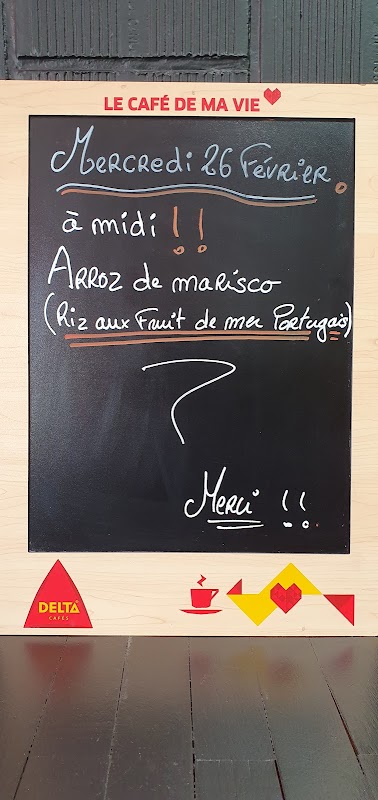 LE CAFÉ DE MA VIE
Mercredi 26 Février.
à midi !!
Arroz de marisco
(Riz aux Fruit de mer Portugais)
?
Merci !!
DELTA
CAFÉS